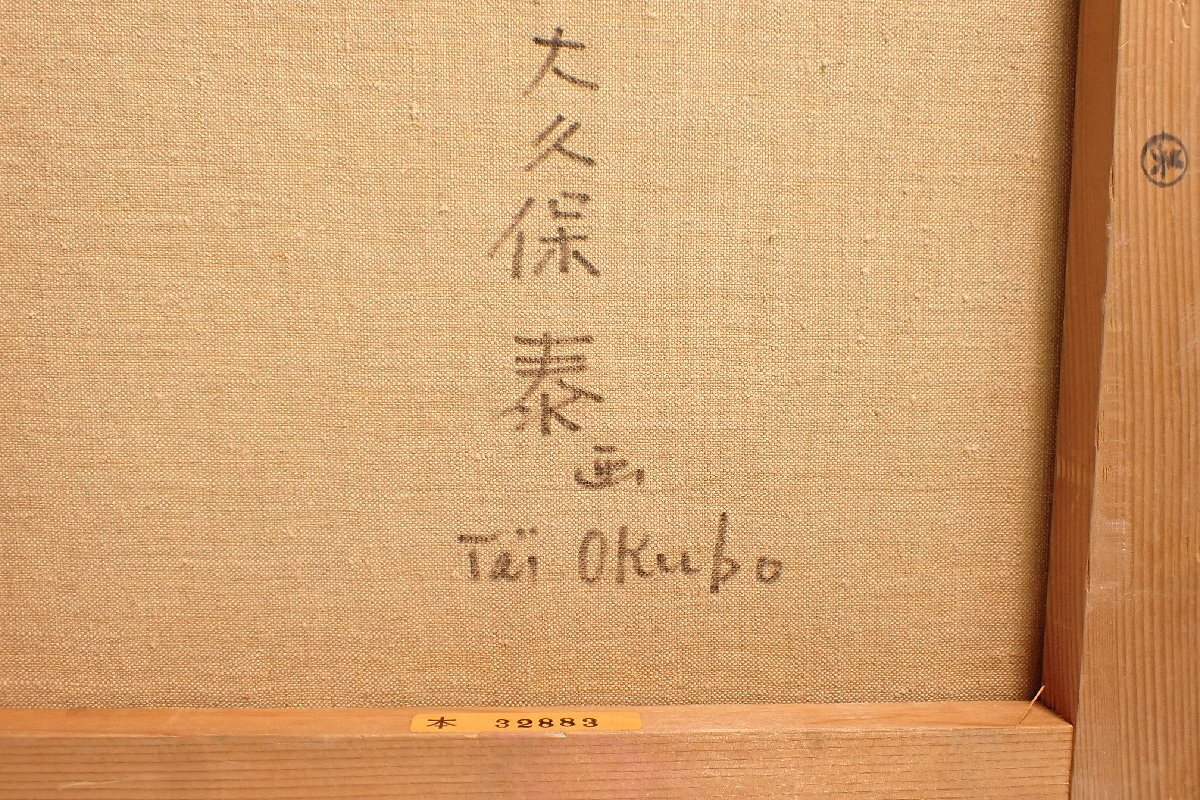 大久保
泰
画
Taï Okubo
木 32883